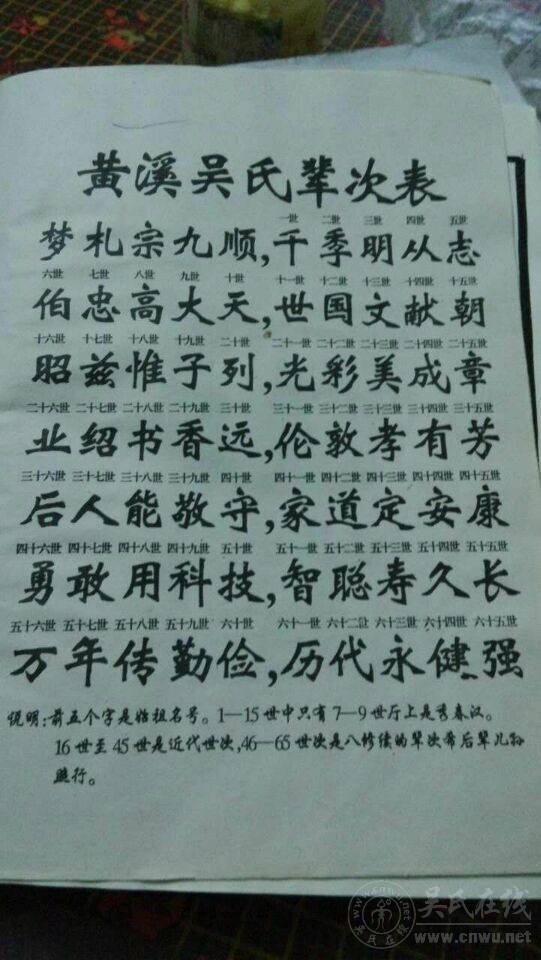 黄溪吴氏辈次表
一世 二世 三世 四世 五世
梦札宗九顺,千季明从志
六世 七世 八世 九世 十世 十一世 十二世 十三世 十四世 十五世
伯忠高大天,世国文献朝
十六世 十七世 十八世 十九世 二十世 二十一世 二十二世 二十三世 二十四世 二十五世
昭兹惟子列,光彩美成章
二十六世 二十七世 二十八世 二十九世 三十世 三十一世 三十二世 三十三世 三十四世 三十五世
业绍书香远,伦敦孝有芳
三十六世 三十七世 三十八世 三十九世 四十世 四十一世 四十二世 四十三世 四十四世 四十五世
后人能敬守,家道定安康
四十六世 四十七世 四十八世 四十九世 五十世 五十一世 五十二世 五十三世 五十四世 五十五世
勇敢用科技,智聪寿久长
五十六世 五十七世 五十八世 五十九世 六十世 六十一世 六十二世 六十三世 六十四世 六十五世
万年传勤俭,历代永健强
说明:前五个字是始祖名号。1—15世中只有7—9世厅上是秀春汉。
16世至45世是近代世次,46—65世次是八修续的辈次希后辈儿孙
照行。
吴氏在线
www.cnwu.net